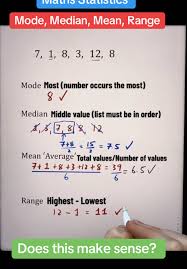 Maths Statistics
Mode, Median, Mean, Range
7, 1, 8, 3, 12, 8
Mode Most (number occurs the most)
8 ✓
Median Middle value (list must be in order)
1, 3, 7, 8, 8, 12
7+8 = 15 = 7.5 ✓
2 2
Mean 'Average' Total values/Number of values
7 + 1 + 8 + 3 + 12 + 8 = 39 = 6.5 ✓
6 6
Range Highest - Lowest
12 - 1 = 11 ✓
Does this make sense?